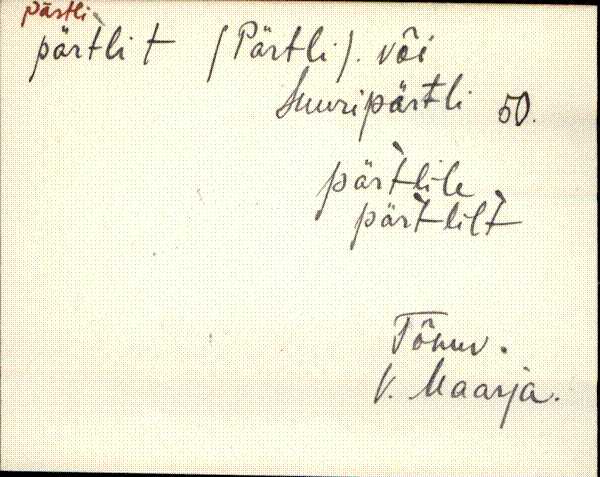 pärtli
pärtlit (Pärtli). või
Suuripärtli 50.
pär̀tlile
pär̀tlilt
Tõnuv.
V. Maarja.